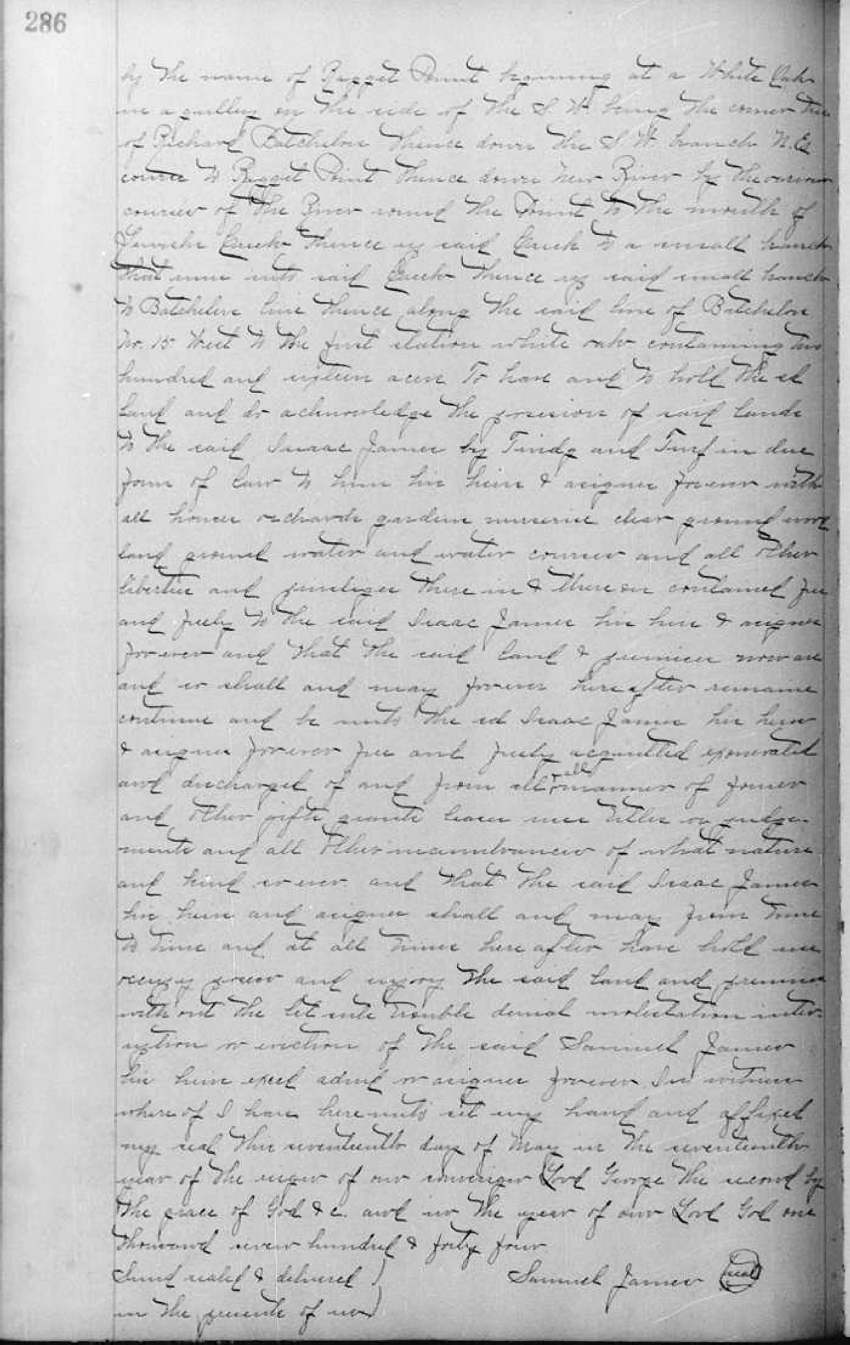 286
by the name of Ragget Point begining at a White Oak
in a gulley on the side of the S W. being the corner tree
of Richard Batchelor thence down the S. W. branch N. E.
course to Ragget Point thence down New River by the various
courses of the River round the Point to the mouth of
Creek thence up said Creek to a small branch
that runs into said Creek thence up said small branch
to Batchelors line thence along the said line of Batchelors
No. 15 West to the first station white oak containing two
hundred and sixteen acres To have and to hold the sd
land and do acknowledge the possession of said lands
to the said Isaac James by Twidg and Turf in due
form of law to him his heirs & asignes forever with
all houses orchards gardens nurseries clear ground wood
land ground water and water courses and all other
liberties and priveliges there in & there on contained free
and freely to the said Isaac James his heirs & asignes
forever and that the said land & premises now are
and so shall and may forever here after remaine
continue and be unto the sd Isaac James his heirs
& asignes forever free and freely acquitted exonerated
and discharged of and from all & all manner of former
and other gifts grants leases uses titles or judge-
ments and all other incumbrances of what nature
and kind so ever and that the said Isaac James
his heirs and asignes shall and may from time
to time and at all times here after have hold use
occupy posess and injoy the said land and premises
with out the let sute trouble denial molistation inter-
uption or eviction of the said Samuel James
his heirs exed admd or asignes forever In witness
where of I have here unto set my hand and affixed
my seal this seventeenth day of May in the seventeenth
year of the reign of our sovereign Lord George the second by
the grace of God & c. and in the year of our Lord God one
thousand seven hundred & forty four
Sind sealed & delivered ) Samuel James (seal)
in the presents of us )